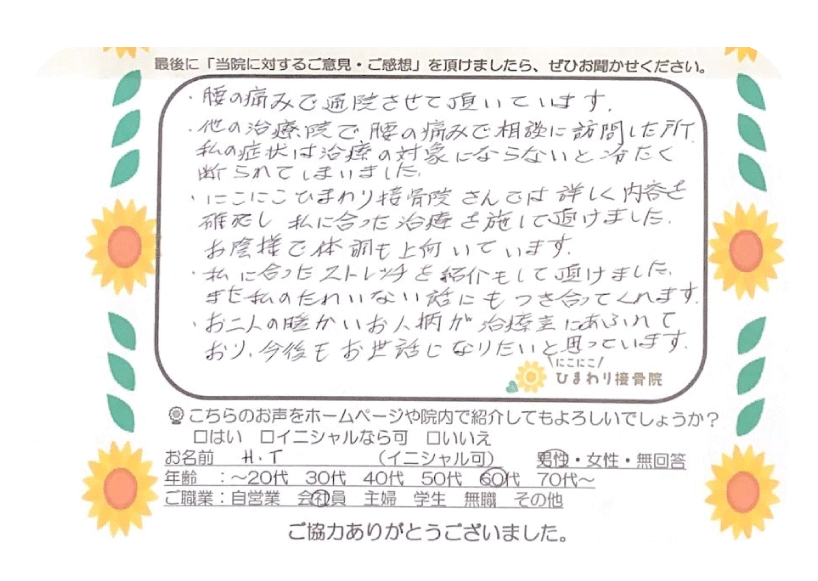 最後に「当院に対するご意見・ご感想」を頂けましたら、ぜひお聞かせください。
・腰の痛みで通院させて頂いています。
・他の治療院で腰の痛みで相談に訪問した所、
私の症状は治療の対象にならないと冷たく
断られてしまいました。
・にこにこひまわり接骨院さんでは詳しく内容を
確認し 私に合った治療を施して頂けました。
お陰様で体調も上向いています。
・私に合ったストレッチを紹介もして頂けました。
また私のたわいない話にもつき合ってくれます。
・お二人の暖かいお人柄が治療室にあふれて
おり、今後もお世話になりたいと思っています。
にこにこ!
ひまわり接骨院
こちらのお声をホームページや院内で紹介してもよろしいでしょうか?
□はい □イニシャルなら可 □いいえ
お名前 H.T (イニシャル可) 男性・女性・無回答
年齢 :〜20代 30代 40代 50代 60代 70代〜
ご職業:自営業 会社員 主婦 学生 無職 その他
ご協力ありがとうございました。